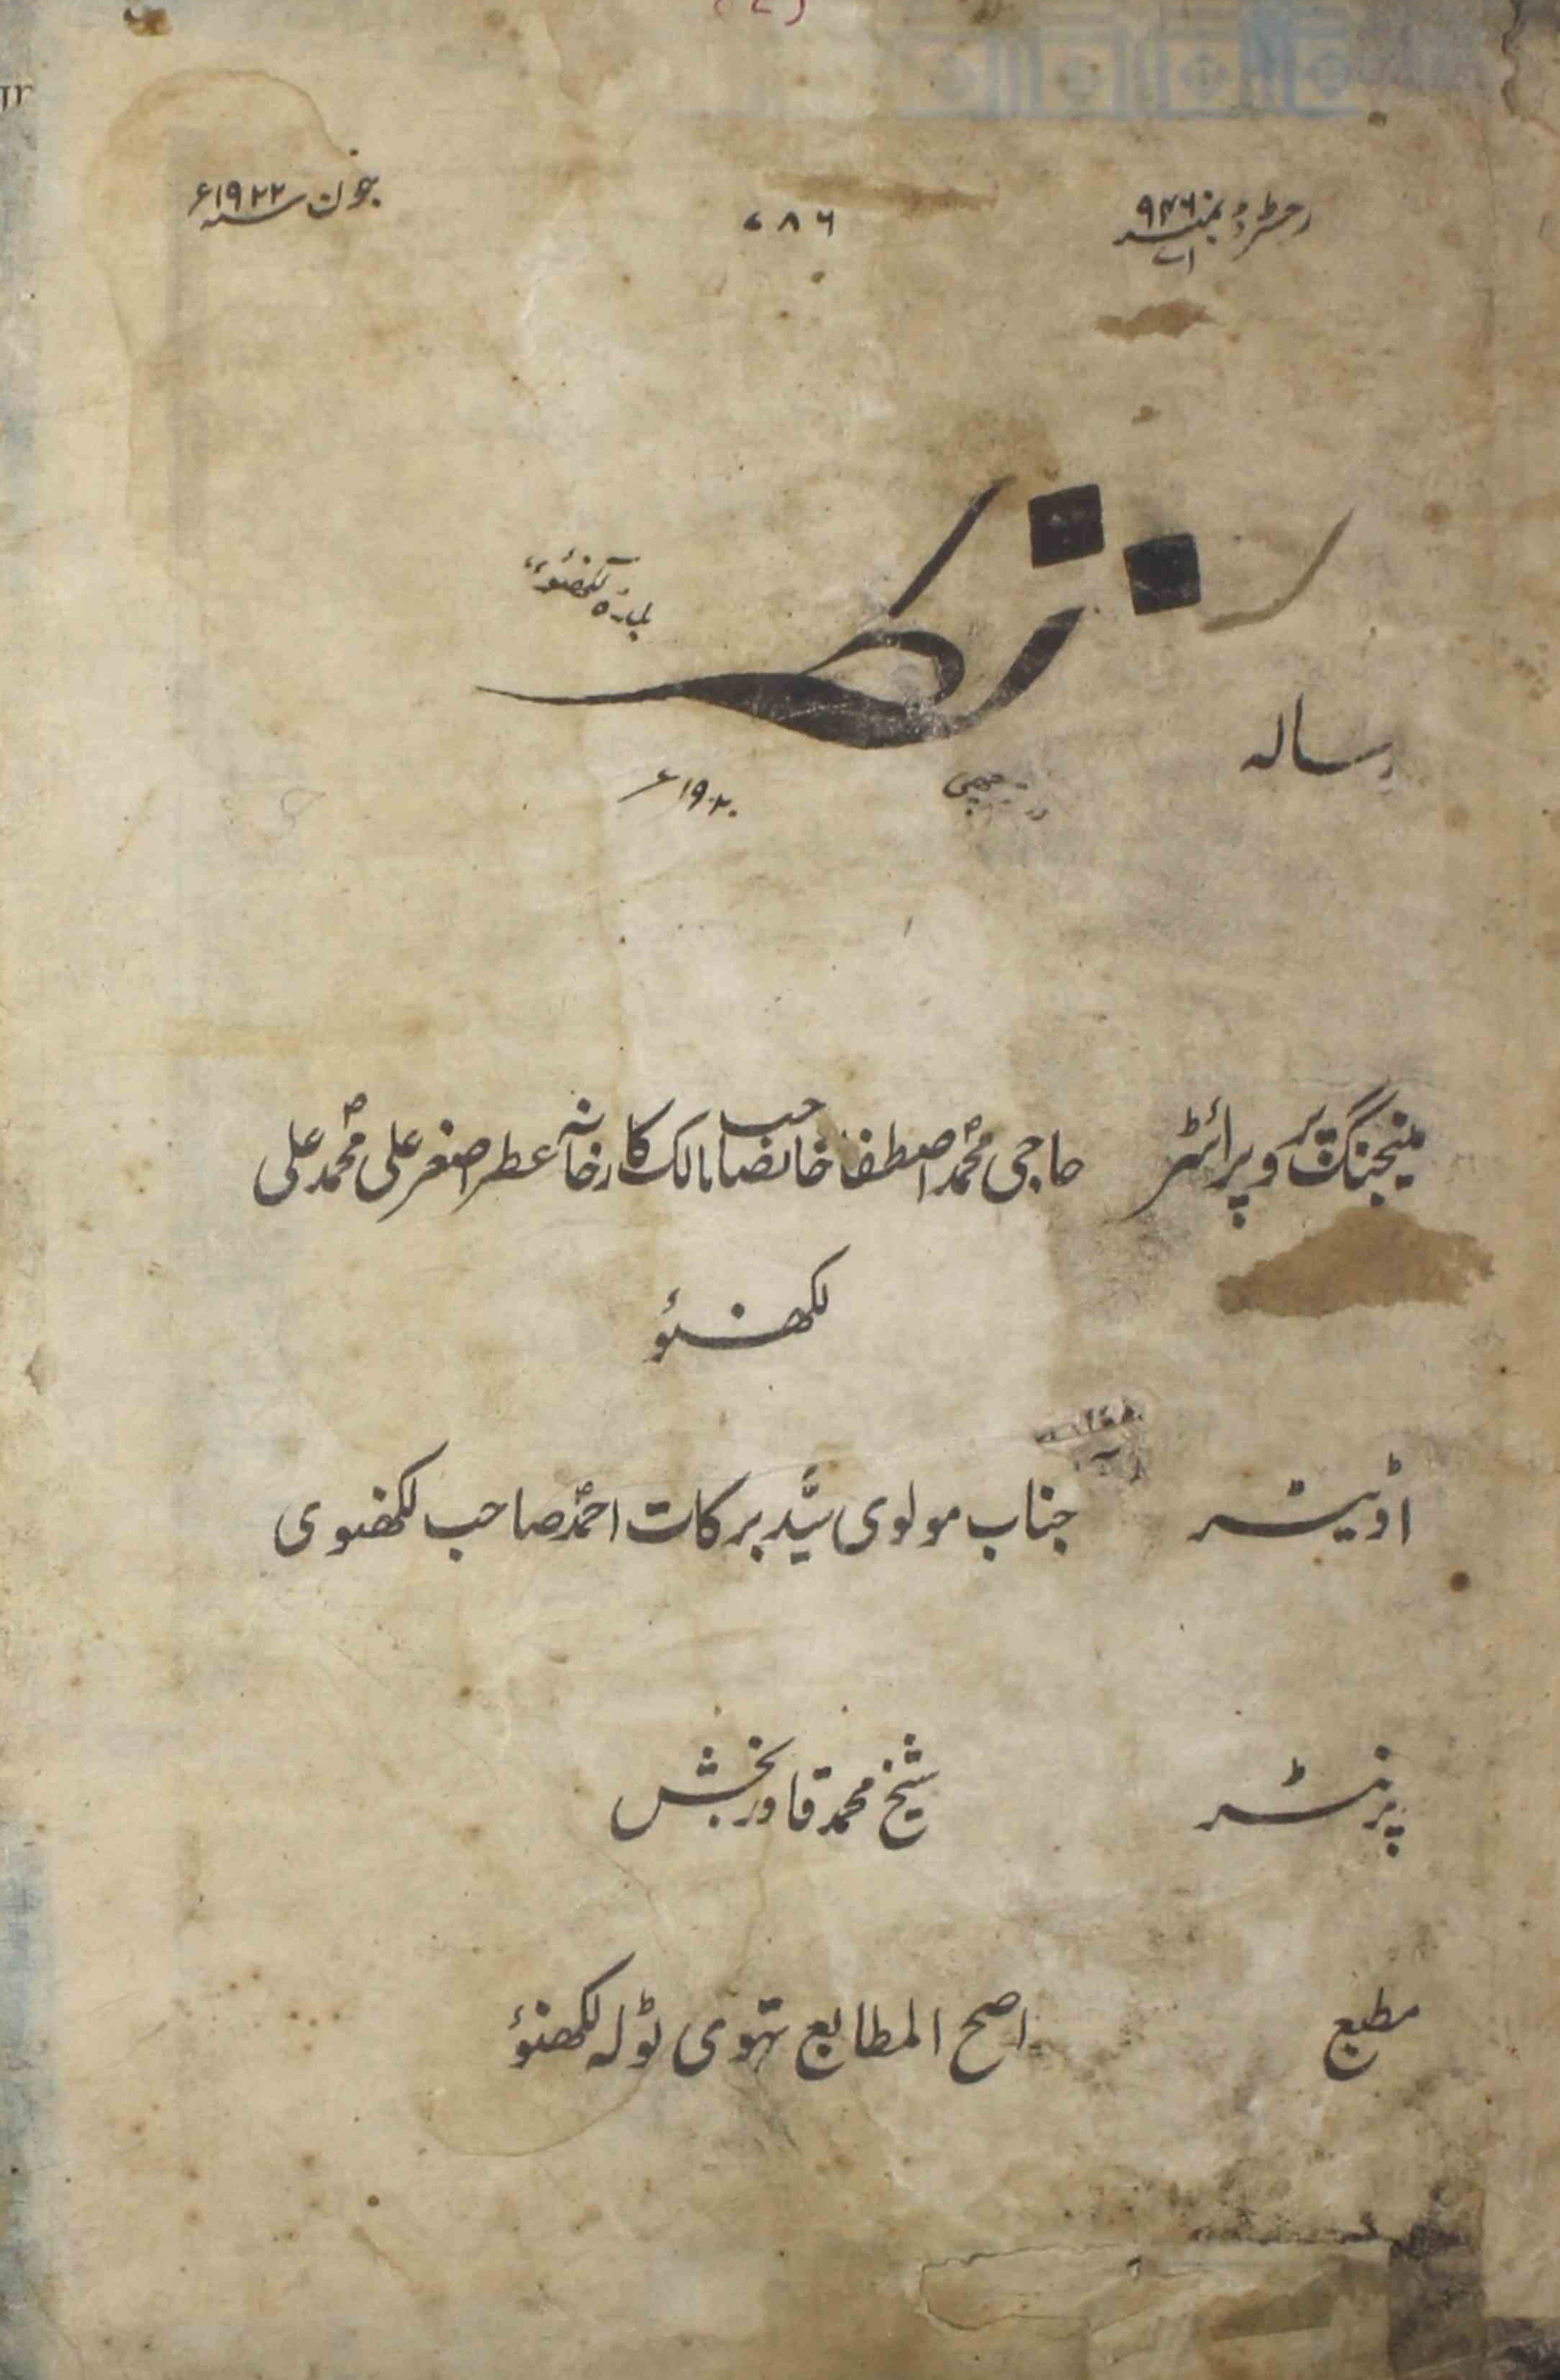 رجسٹرڈ نمبر ۹۴۶ اے
۷۸۶
جون سنہ ۱۹۲۲ء
نظر
بلدہ لکھنؤ
رسالہ
۱۹۲۰ء
منیجنگ پروپرائٹر حاجی محمد اصطفا خانصاحب مالک کارخانہ عطر اصغر علی محمد علی
لکھنؤ
اڈیٹر جناب مولوی سید برکات احمد صاحب لکھنوی
پرنٹر شیخ محمد قادر بخش
مطبع اصح المطابع تھوی ٹولہ لکھنؤ